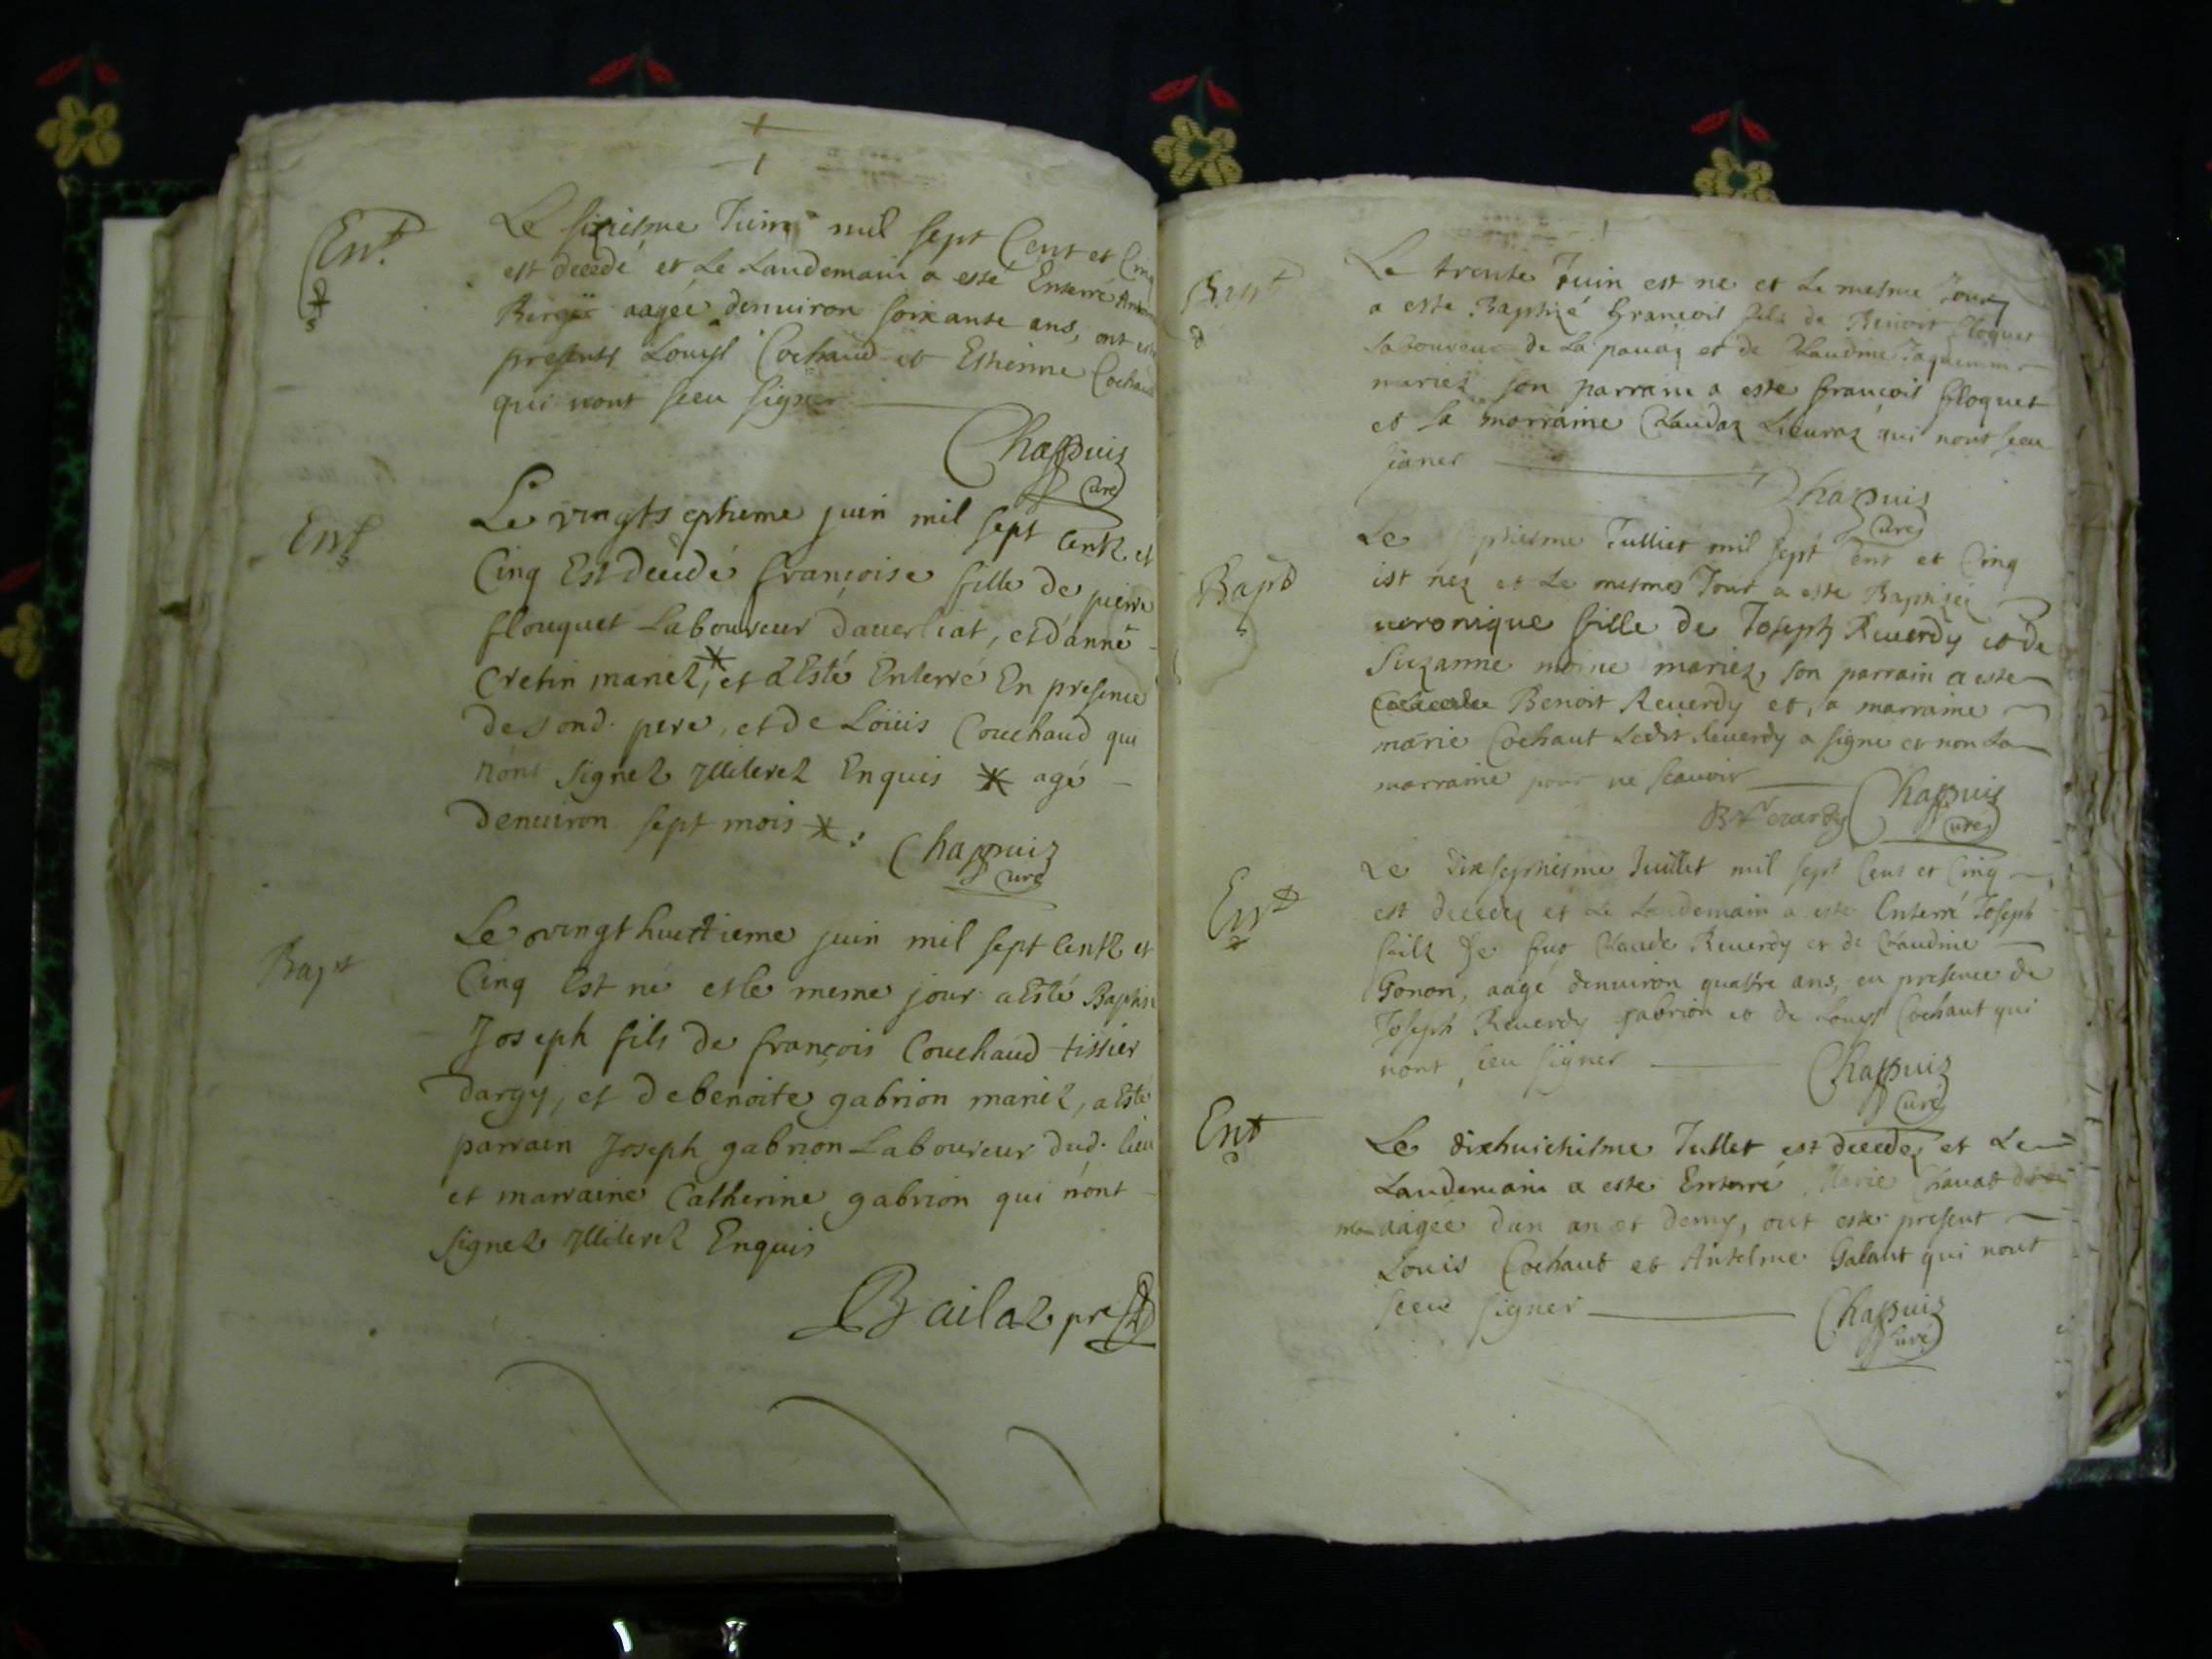 Ent
Le sixiesme Juin mil sept Cent et Cinq
est decedé et Le Landemain a esté Enterré
Berger aagée denuiron soixante ans, ont esté
presents Louys Cochaud et Estienne Cochaud
qui nont sceu signer
Chappuis
Curé
Ent
Le vingtseptieme juin mil sept Centz et
Cinq Est decedé françoise fille de pierre
flouquet Laboureur dauerliat, et d'anne
Cretin mariez, et a Esté Enterré En presence
de sond. pere, et de Loüis Couchaud qui
n'ont signez Illiterez Enquis agé
denuiron sept mois :
Chappuis
Curé
Bapt
Le vingt huictieme juin mil sept Centz et
Cinq Est né et le meme jour a Esté Baptisé
Joseph fils de françois Couchaud tissier
dargy, et de benoite gabrion mariez, a Esté
parrain Joseph gabrion Laboureur dud. lieu
et marraine Catherine gabrion qui n'ont
signez Illiterez Enquis
Bailaz pre
Bapt
Le trente Juin est ne et Le mesme Jour
a este Baptizé françois fils de Benoit floquet
Laboureur de La pauaz et de Claudine Jaquemin
mariez son parrain a este françois floquet
et sa marraine Claudaz Lieuraz qui nont sceu
signer
Chappuis
Curé
Bapt
Le septiesme Julliet mil sept Cent et Cinq
est nez et Le mesmes Jour a este Baptizée
ueronique fille de Joseph Reuerdy et de
Suzanne moine mariez, son parrain a este
Benoit Reuerdy et sa marraine
marie Cochaut Ledit Reuerdy a signe et non La
marraine pour ne scauoir
Chappuis
Curé
Ent
Le dixseptiesme Juillet mil sept Cent et Cinq
est decedez et Le Landemain a este Enterré Joseph
fils de fut Claude Reuerdy et de Claudine
Gonon, aagé denuiron quattre ans, en presence de
Joseph Reuerdy gabrion et de Louys Cochaut qui
nont sceu signer
Chappuis
Curé
Ent
Le dixhuictiesme Jullet est decedez et Le
Landemain a este Enterré Marie Chanat
aagée dun an et demy, ont este present
Louis Cochaut et Antelme Galant qui nont
sceu signer
Chappuis
Curé